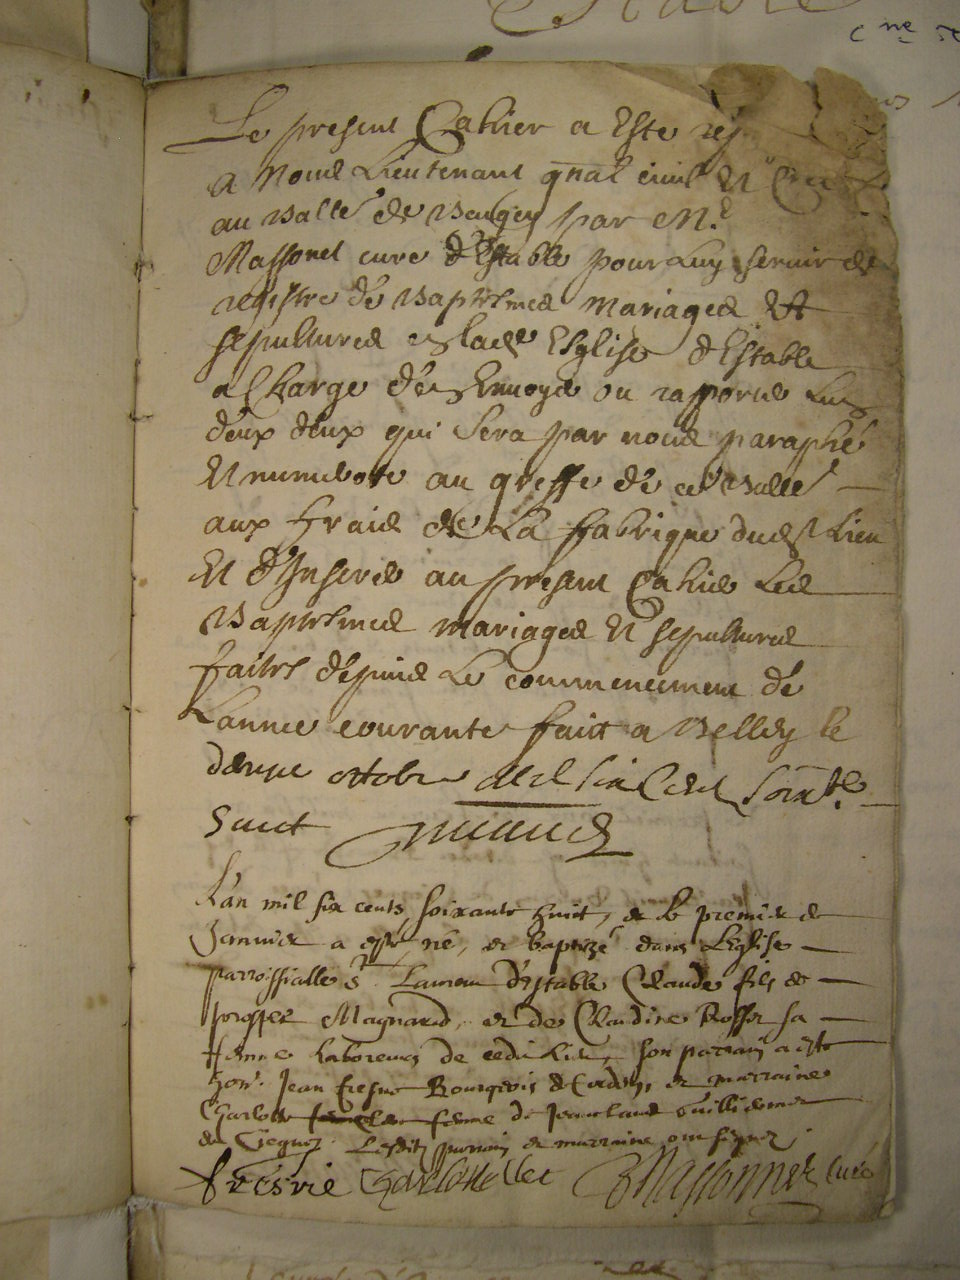 Le present Cahier a Este
a Nous Lieutenant gnal civil Et
au Balle de Beugey par Mr
Massonet curé d'Estable pour Luy servir de
registre de Baptesmes Mariages Et
sepultures en lade Esglise d'Estable
a Charge d'en Envoyer ou raporter Lun
d'eux deux qui sera par nous paraphé
Et numeroté au greffe de ce Balle
aux fraix de La fabrique dudt Lieu
Et d'Inserer au present Cahier Les
Baptesmes mariages Et sepultures
faites depuis Le commencement de
Lannee courante fait a Belley le
octobre Mil six Cent soixte
huict
L'an mil six cents soixante huit, et le premier de
Janvier a esté né, et baptizé dans L'Eglise
parrossialle St Laurent d'Estable Claude fils de
prosper Magnard, et de Claudine Rosset sa
femme Laboureurs de cedit Lieu, son parrain a esté
hon. Jean fresne Bourgeois de Cerdon, et marraine
Charlotte femme de Jean claude
de Lesdits parrain et marraine ont signez
Charlotte Massonnet curé